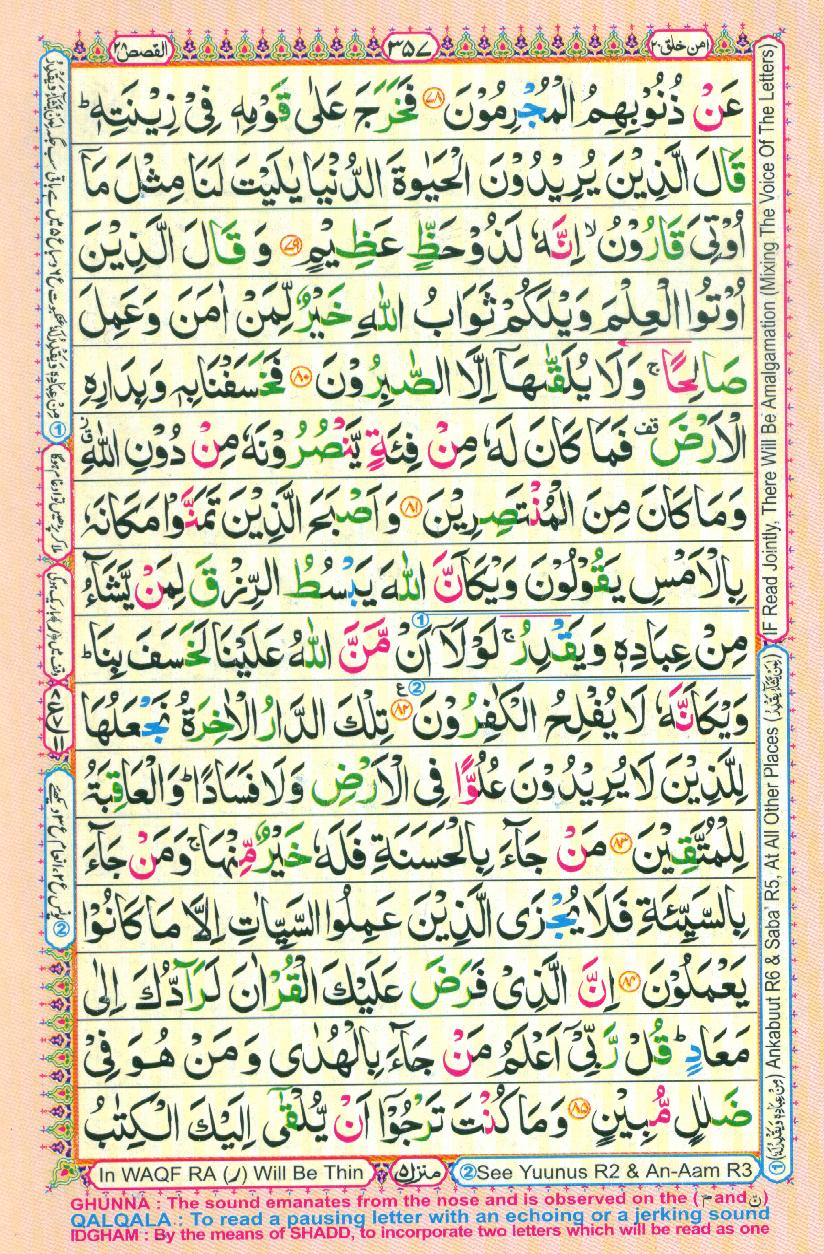 القصص ٢٨
٣٥٧
امن خلق ٢٠
عَنْ ذُنُوْبِهِمُ الْمُجْرِمُوْنَ ﴿٧٨﴾ فَخَرَجَ عَلٰى قَوْمِهٖ فِىْ زِيْنَتِهٖ ؕ
قَالَ الَّذِيْنَ يُرِيْدُوْنَ الْحَيٰوةَ الدُّنْيَا يٰلَيْتَ لَنَا مِثْلَ مَاۤ
اُوْتِىَ قَارُوْنُ ۙ اِنَّهٗ لَذُوْ حَظٍّ عَظِيْمٍ ﴿٧٩﴾ وَقَالَ الَّذِيْنَ
اُوْتُوا الْعِلْمَ وَيْلَكُمْ ثَوَابُ اللّٰهِ خَيْرٌ لِّمَنْ اٰمَنَ وَعَمِلَ
صَالِحًا ۚ وَلَا يُلَقّٰىهَاۤ اِلَّا الصّٰبِرُوْنَ ﴿٨٠﴾ فَخَسَفْنَا بِهٖ وَبِدَارِهِ
الْاَرْضَ قف فَمَا كَانَ لَهٗ مِنْ فِئَةٍ يَّنْصُرُوْنَهٗ مِنْ دُوْنِ اللّٰهِ ق
وَمَا كَانَ مِنَ الْمُنْتَصِرِيْنَ ﴿٨١﴾ وَاَصْبَحَ الَّذِيْنَ تَمَنَّوْا مَكَانَهٗ
بِالْاَمْسِ يَقُوْلُوْنَ وَيْكَاَنَّ اللّٰهَ يَبْسُطُ الرِّزْقَ لِمَنْ يَّشَآءُ
مِنْ عِبَادِهٖ وَيَقْدِرُ ۚ لَوْلَاۤ اَنْ مَّنَّ اللّٰهُ عَلَيْنَا لَخَسَفَ بِنَا ؕ
وَيْكَاَنَّهٗ لَا يُفْلِحُ الْكٰفِرُوْنَ ﴿٨٢﴾ ع تِلْكَ الدَّارُ الْاٰخِرَةُ نَجْعَلُهَا
لِلَّذِيْنَ لَا يُرِيْدُوْنَ عُلُوًّا فِى الْاَرْضِ وَلَا فَسَادًا ؕ وَالْعَاقِبَةُ
لِلْمُتَّقِيْنَ ﴿٨٣﴾ مَنْ جَآءَ بِالْحَسَنَةِ فَلَهٗ خَيْرٌ مِّنْهَا ۚ وَمَنْ جَآءَ
بِالسَّيِّئَةِ فَلَا يُجْزَى الَّذِيْنَ عَمِلُوا السَّيِّاٰتِ اِلَّا مَا كَانُوْا
يَعْمَلُوْنَ ﴿٨٤﴾ اِنَّ الَّذِىْ فَرَضَ عَلَيْكَ الْقُرْاٰنَ لَرَآدُّكَ اِلٰى
مَعَادٍ ؕ قُلْ رَّبِّىْۤ اَعْلَمُ مَنْ جَآءَ بِالْهُدٰى وَمَنْ هُوَ فِىْ
ضَلٰلٍ مُّبِيْنٍ ﴿٨٥﴾ وَمَا كُنْتَ تَرْجُوْۤا اَنْ يُّلْقٰٓى اِلَيْكَ الْكِتٰبُ
IF Read Jointly, There Will Be Amalgamation (Mixing The Voice Of The Letters)
① (مِنْ عِبَادِهٖ وَيَقْدِرُ لَهٗ) Ankabuut R6 & Saba' R5, At All Other Places (لِمَنْ يَّشَآءُ وَيَقْدِرُ)
In WAQF RA (ر) Will Be Thin
منزل ٥
② See Yuunus R2 & An-Aam R3
GHUNNA : The sound emanates from the nose and is observed on the (م and ن)
QALQALA : To read a pausing letter with an echoing or a jerking sound
IDGHAM : By the means of SHADD, to incorporate two letters which will be read as one